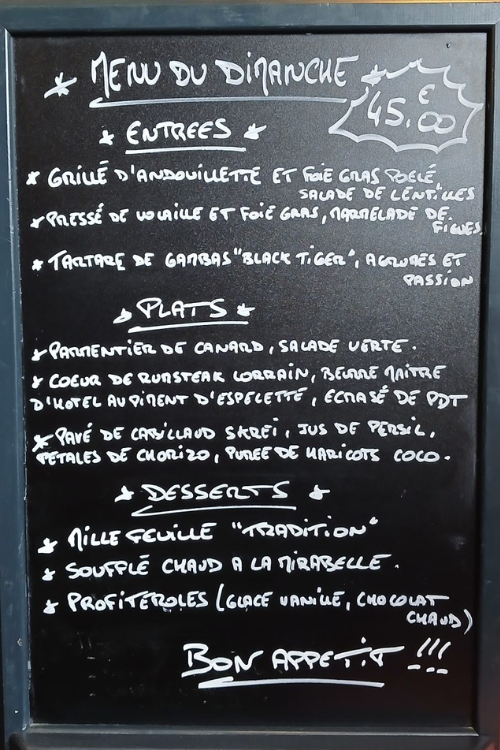 MENU DU DIMANCHE
45.00 €
ENTREES
* GRILLÉ D'ANDOUILLETTE ET FOIE GRAS POELÉ
SALADE DE LENTILLES
* PRESSÉ DE VOLAILLE ET FOIE GRAS, MARMELADE DE
FIGUES
* TARTARE DE GAMBAS "BLACK TIGER", AGRUMES ET
PASSION
PLATS
* PARMENTIER DE CANARD, SALADE VERTE.
* COEUR DE RUMSTEAK LORRAIN, BEURRE MAITRE
D'HOTEL AU PIMENT D'ESPELETTE, ECRASÉ DE PDT
* PAVÉ DE CABILLAUD SKREÏ, JUS DE PERSIL,
PETALES DE CHORIZO, PUREE DE HARICOTS COCO.
DESSERTS
* MILLE FEUILLE "TRADITION"
* SOUFFLÉ CHAUD A LA MIRABELLE.
* PROFITEROLES (GLACE VANILLE, CHOCOLAT
CHAUD)
BON APPETIT !!!